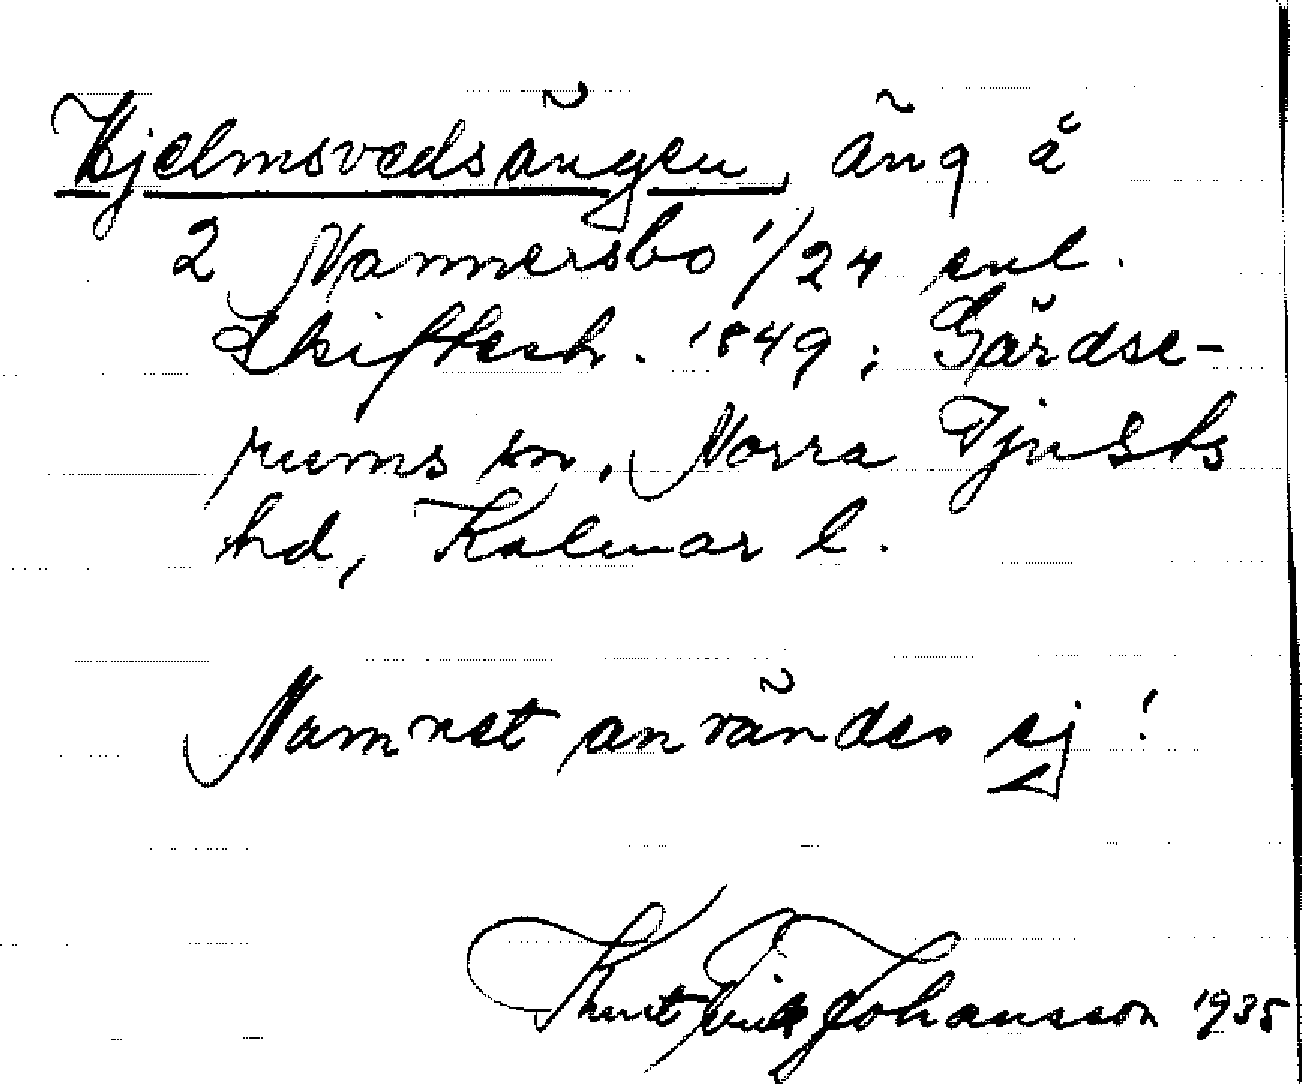 Hjelmsvedsängen, äng å
2 Vammersbo 1/24 enl.
Skiftesh. 1849; Gärdse-
rums sn, Norra Tjusts
hd, Kalmar l.
Namnet användes ej!
Kurt Erik Johansson 1935